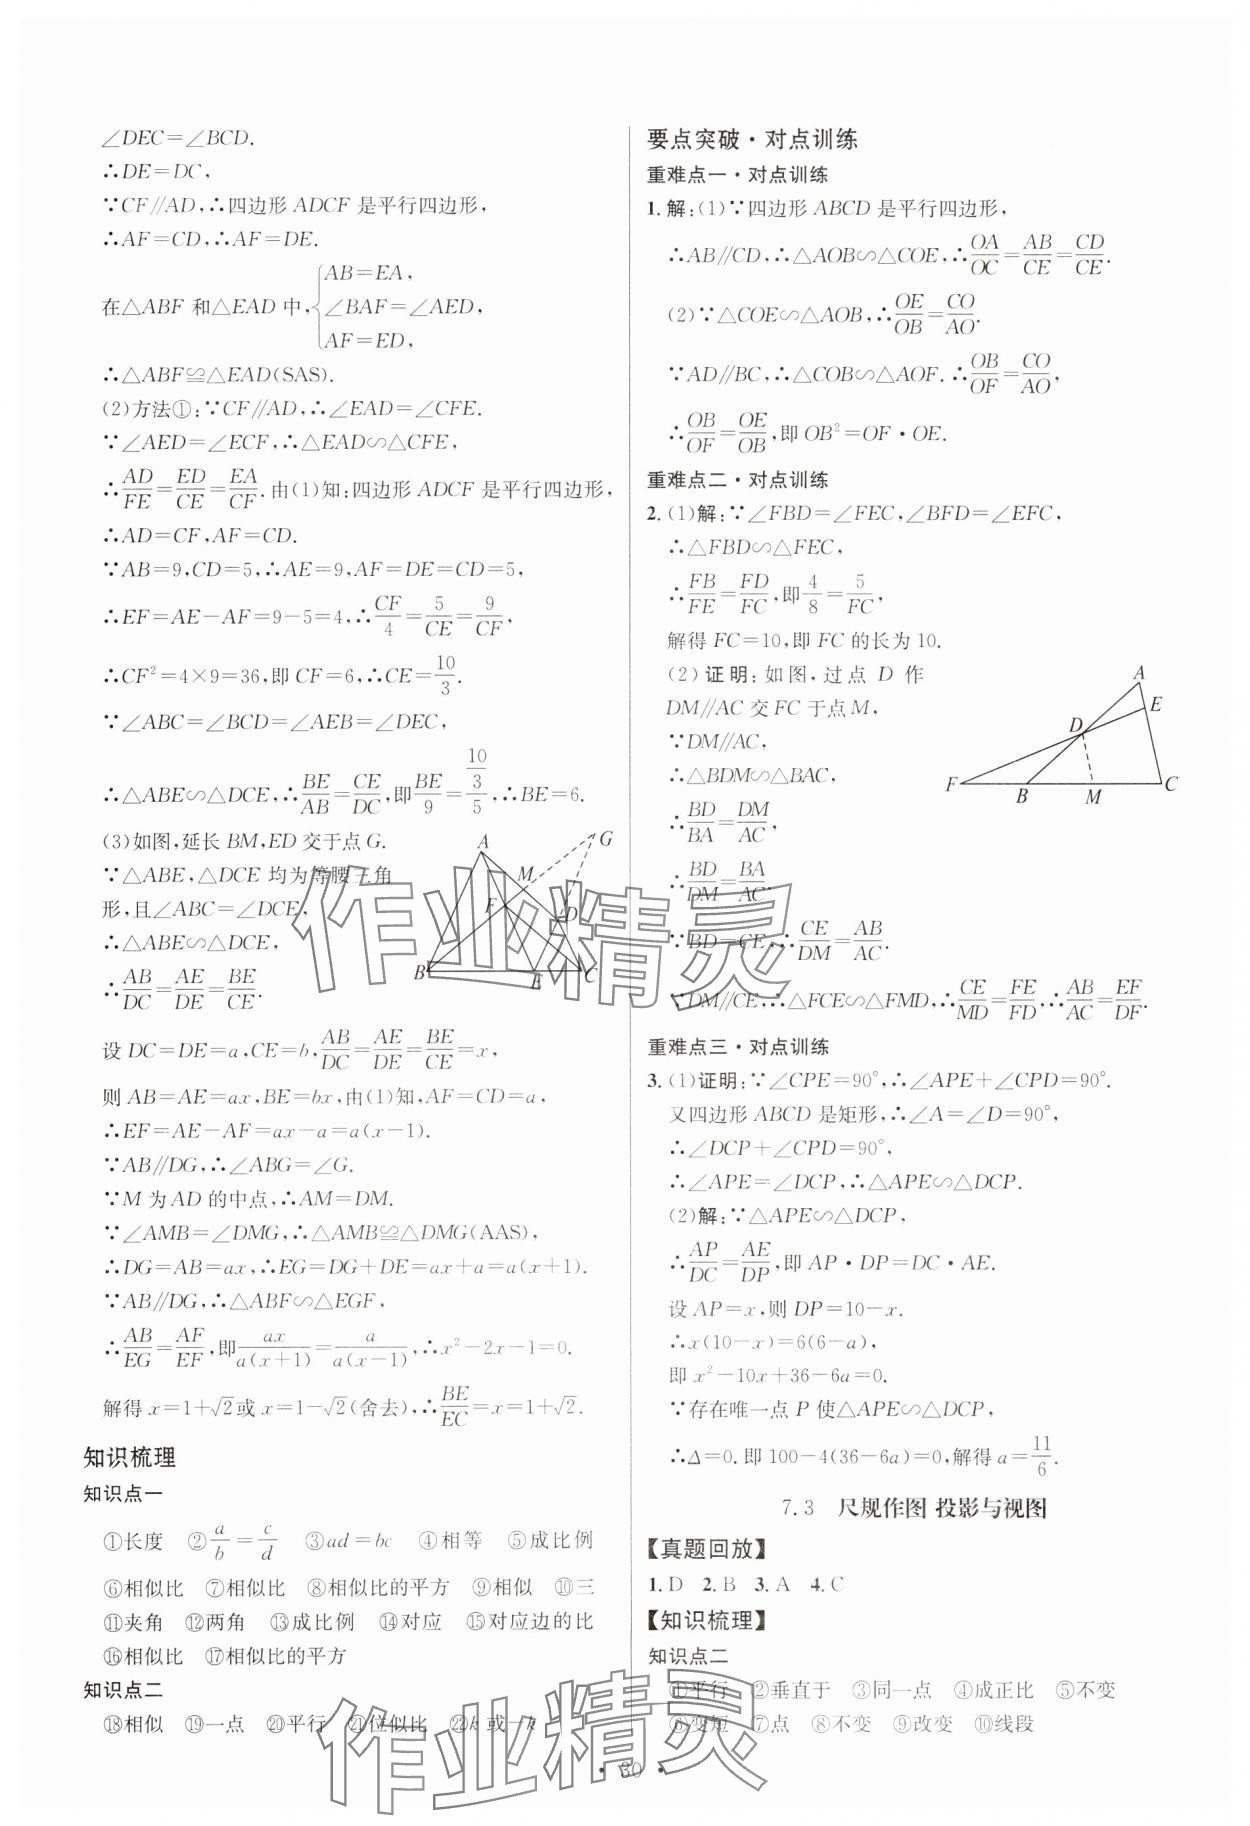 ∠DEC=∠BCD.
∴DE=DC,
∵CF∥AD,∴四边形 ADCF 是平行四边形,
∴AF=CD,∴AF=DE.
AB=EA,
在△ABF 和△EAD 中,{∠BAF=∠AED,
AF=ED,
∴△ABF≌△EAD(SAS).
(2)方法①:∵CF∥AD,∴∠EAD=∠CFE.
∵∠AED=∠ECF,∴△EAD∽△CFE,
∴AD/FE=ED/CE=EA/CF.由(1)知:四边形 ADCF 是平行四边形,
∴AD=CF,AF=CD.
∵AB=9,CD=5,∴AE=9,AF=DE=CD=5,
∴EF=AE-AF=9-5=4,∴CF/4=5/CE=9/CF,
∴CF²=4×9=36,即 CF=6,∴CE=10/3.
∵∠ABC=∠BCD=∠AEB=∠DEC,
∴△ABE∽△DCE,∴BE/AB=CE/DC,即BE/9=(10/3)/5,∴BE=6.
(3)如图,延长 BM,ED 交于点 G.
∵△ABE,△DCE 均为等腰三角
形,且∠ABC=∠DCE,
∴△ABE∽△DCE,
∴AB/DC=AE/DE=BE/CE.
A
G
M
F
D
B
E
C
设 DC=DE=a,CE=b,AB/DC=AE/DE=BE/CE=x,
则 AB=AE=ax,BE=bx,由(1)知,AF=CD=a,
∴EF=AE-AF=ax-a=a(x-1).
∵AB∥DG,∴∠ABG=∠G.
∵M 为 AD 的中点,∴AM=DM.
∵∠AMB=∠DMG,∴△AMB≌△DMG(AAS),
∴DG=AB=ax,∴EG=DG+DE=ax+a=a(x+1).
∵AB∥DG,∴△ABF∽△EGF,
∴AB/EG=AF/EF,即ax/a(x+1)=a/a(x-1),∴x²-2x-1=0.
解得 x=1+√2或 x=1-√2(舍去),∴BE/EC=x=1+√2.
知识梳理
知识点一
①长度 ②a/b=c/d ③ad=bc ④相等 ⑤成比例
⑥相似比 ⑦相似比 ⑧相似比的平方 ⑨相似 ⑩三
⑪夹角 ⑫两角 ⑬成比例 ⑭对应 ⑮对应边的比
⑯相似比 ⑰相似比的平方
知识点二
⑱相似 ⑲一点 ⑳平行 ㉑位似比 ㉒k 或-k
要点突破·对点训练
重难点一·对点训练
1.解:(1)∵四边形 ABCD 是平行四边形,
∴AB∥CD,∴△AOB∽△COE,∴OA/OC=AB/CE=CD/CE.
(2)∵△COE∽△AOB,∴OE/OB=CO/AO.
∵AD∥BC,∴△COB∽△AOF.∴OB/OF=CO/AO,
∴OB/OF=OE/OB,即 OB²=OF·OE.
重难点二·对点训练
2.(1)解:∵∠FBD=∠FEC,∠BFD=∠EFC,
∴△FBD∽△FEC,
∴FB/FE=FD/FC,即4/8=5/FC,
解得 FC=10,即 FC 的长为 10.
(2)证明:如图,过点 D 作
DM∥AC 交 FC 于点 M,
∵DM∥AC,
∴△BDM∽△BAC,
∴BD/BA=DM/AC,
∴BD/DM=BA/AC.
A
E
D
F
B
M
C
∵BD=CE,∴CE/DM=AB/AC.
∵DM∥CE,∴△FCE∽△FMD,∴CE/MD=FE/FD.∴AB/AC=EF/DF.
重难点三·对点训练
3.(1)证明:∵∠CPE=90°,∴∠APE+∠CPD=90°.
又四边形 ABCD 是矩形,∴∠A=∠D=90°,
∴∠DCP+∠CPD=90°,
∴∠APE=∠DCP,∴△APE∽△DCP.
(2)解:∵△APE∽△DCP,
∴AP/DC=AE/DP,即 AP·DP=DC·AE.
设 AP=x,则 DP=10-x.
∴x(10-x)=6(6-a),
即 x²-10x+36-6a=0.
∵存在唯一点 P 使△APE∽△DCP,
∴Δ=0.即 100-4(36-6a)=0,解得 a=11/6.
7.3 尺规作图 投影与视图
【真题回放】
1.D 2.B 3.A 4.C
【知识梳理】
知识点二
①平行 ②垂直于 ③同一点 ④成正比 ⑤不变
⑥变短 ⑦点 ⑧不变 ⑨改变 ⑩线段
·30·
作业精灵
作业精灵